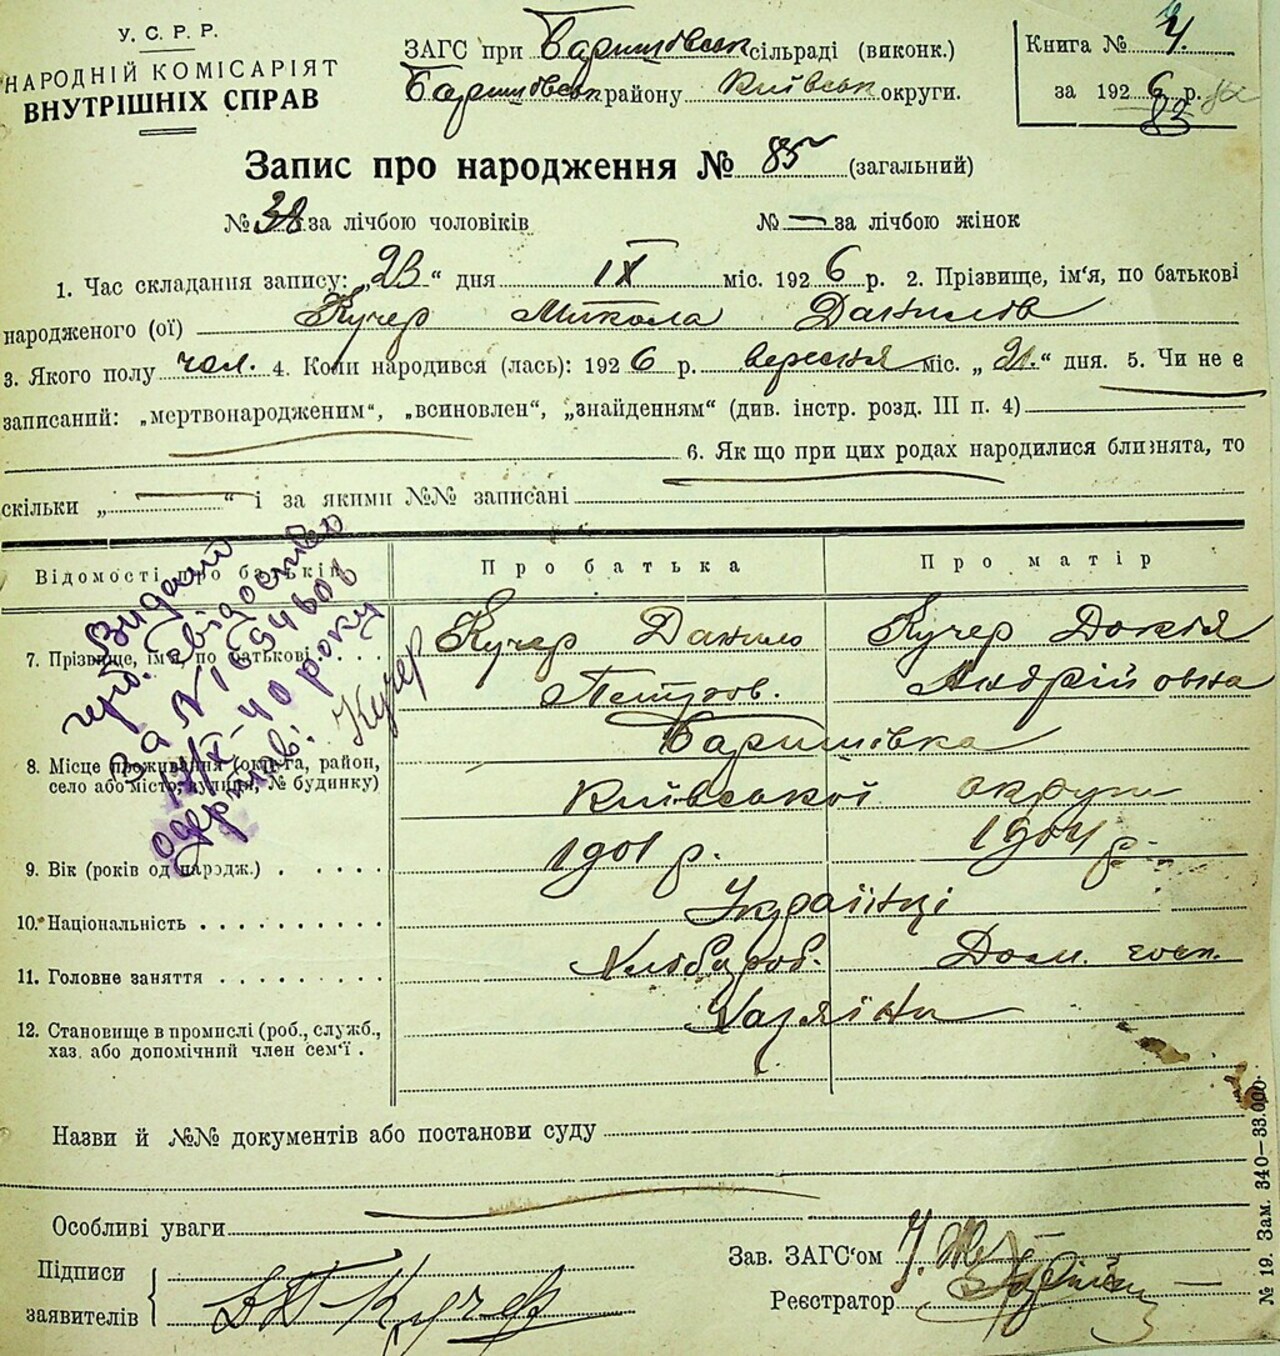 У. С. Р. Р.
НАРОДНІЙ КОМІСАРІЯТ
ВНУТРІШНІХ СПРАВ
ЗАГС при Баришівськ сільраді (виконк.)
Баришівськ району Київськ округи.
Книга № 4.
за 1926 р.
83
Запис про народження № 85 (загальний)
№ 38 за лічбою чоловіків № — за лічбою жінок
1. Час складання запису: „23“ дня IX міс. 1926 р. 2. Прізвище, ім'я, по батькові
народженого (ої) Кучер Микола Данилів
3. Якого полу чол. 4. Коли народився (лась): 1926 р. вересня міс. „21.“ дня. 5. Чи не є
записаний: „мертвонародженим“, „всиновлен“, „знайденням“ (див. інстр. розд. III п. 4)
6. Як що при цих родах народилися близнята, то
скільки „ — “ і за якими №№ записані
Відомості про батьків Про батька Про матір
Видано
герб. свідоцтво
за N 169460
17/IX-40 року
одержав: Кучер
7. Прізвище, ім'я, по батькові . . . . Кучер Данило Кучер Докія
Петров. Андрійовна
8. Місце проживання (округа, район,
село або місто, вулиця, № будинку)
Баришівка
Київської округи
9. Вік (років од народж.) . . . . . 1901 р. 1904 р.
10. Національність . . . . . . . . . . Українці
11. Головне заняття . . . . . . . . . Хлібороб. Дом. госп.
12. Становище в промислі (роб., служб.,
хаз. або допомічний член сем'ї .
Хазяїни
Назви й №№ документів або постанови суду
Особливі уваги
Підписи
заявителів
Кучер
Зав. ЗАГС'ом
Реєстратор
№ 19. Зам. 340—33.000.